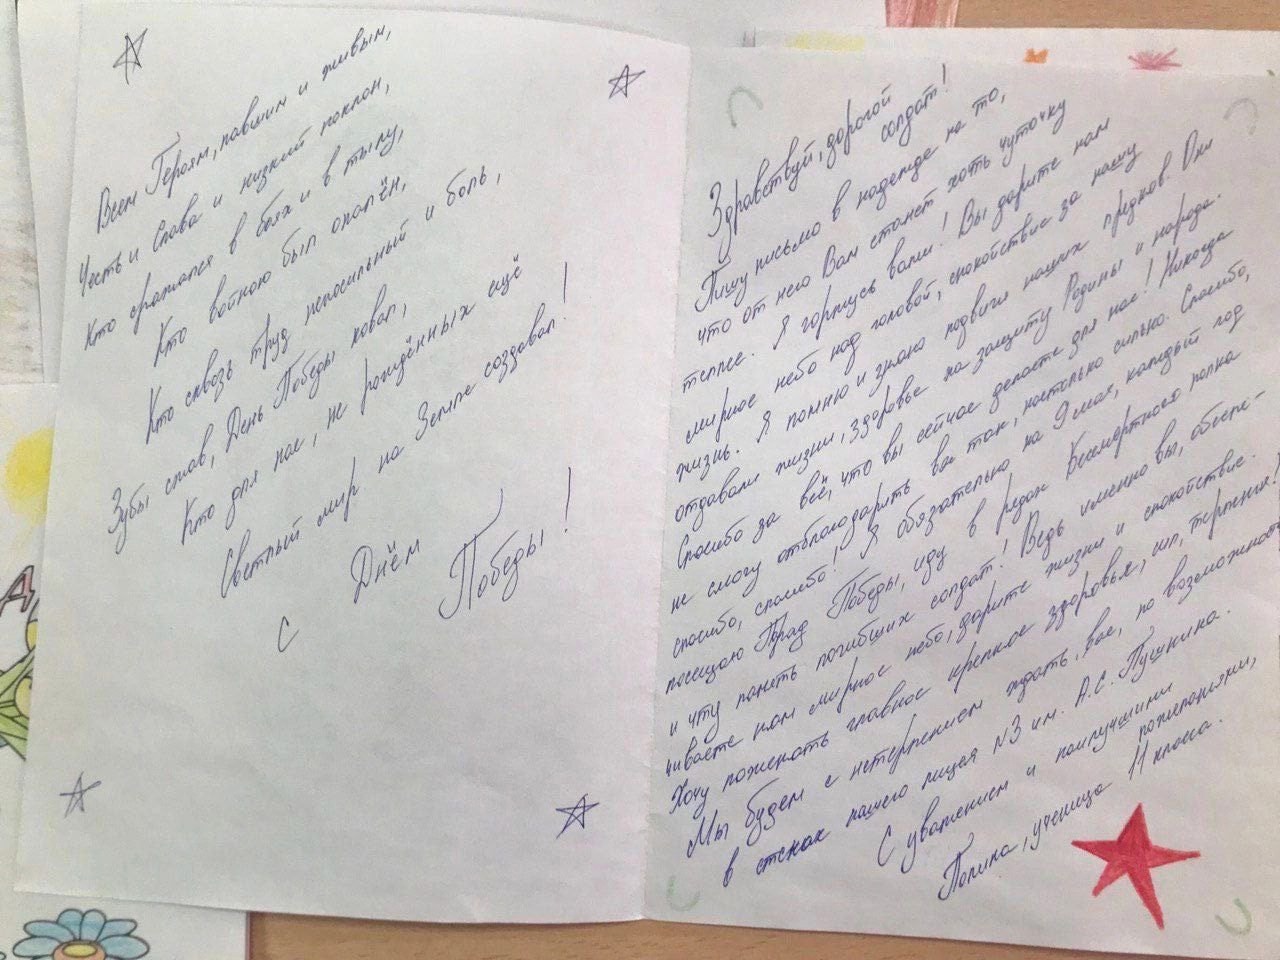 Всем Героям, павшим и живым,
Честь и Слава и низкий поклон,
Кто сражался в боях и в тылу,
Кто войною был опалён,
Кто сквозь труд непосильный и боль,
Зубы сжав, День Победы ковал,
Кто для нас, не рождённых ещё
Светлый мир на Земле создавал!
С Днём Победы!
Здравствуй, дорогой
солдат!
Пишу письмо в надежде на то,
что от него Вам станет хоть чуточку
теплее. Я горжусь вами! Вы дарите нам
мирное небо над головой, спокойствие за нашу
жизнь. Я помню и знаю подвиги наших предков. Они
отдавали жизни, здоровье на защиту Родины и народа.
Спасибо за всё, что вы сейчас делаете для нас! Никогда
не смогу отблагодарить вас так, настолько сильно. Спасибо,
спасибо, спасибо! Я обязательно на 9 мая, каждый год
посещаю Парад Победы, иду в рядах Бессмертного полка
и чту память погибших солдат! Ведь именно вы, обеспе-
чиваете нам мирное небо, дарите жизни и спокойствие.
Хочу пожелать главное крепкое здоровье, сил, терпения!
Мы будем с нетерпением ждать вас, по возможност
в стенах нашего лицея №3 им. А.С. Пушкина.
С уважением и наилучшими
пожеланиями,
Полина, ученица 11 класса.